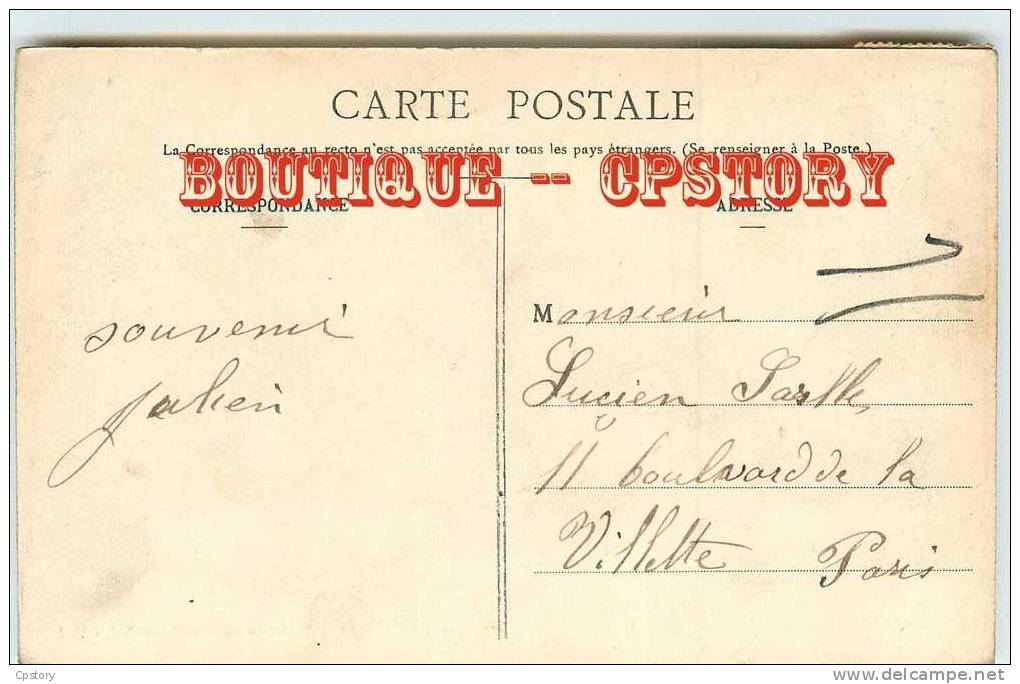 CARTE POSTALE
La Correspondance au recto n'est pas acceptée par tous les pays étrangers. (Se renseigner à la Poste.)
BOUTIQUE -- CPSTORY
CORRESPONDANCE
ADRESSE
souvenir
Monsieur
Lucien
11 boulvard de la
Villette Paris
Cpstory
www.delcampe.net